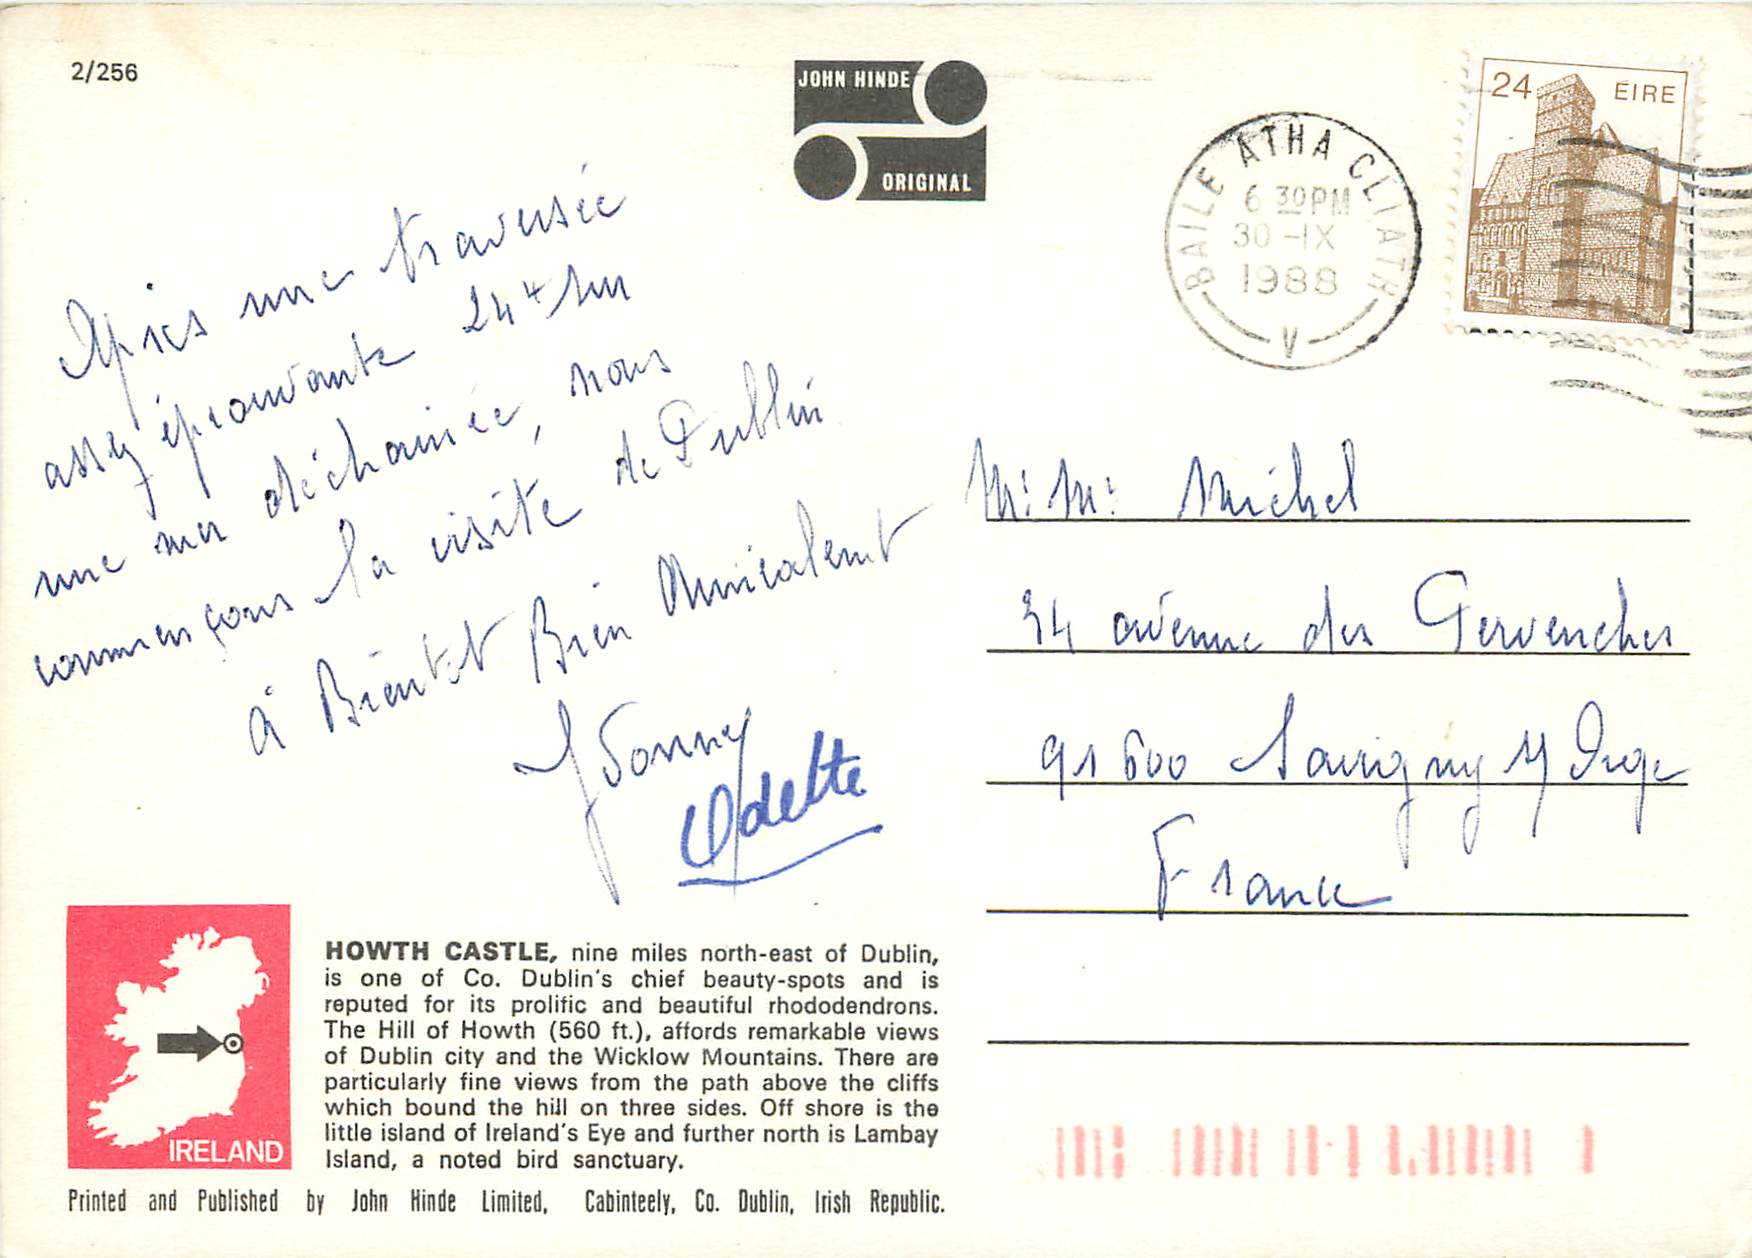 2/256
JOHN HINDE
ORIGINAL
BAILE ATHA CLIATH
6 30PM
30-IX
1988
V
24 ÉIRE
Après une traversée
assez éprouvante 24 h sur
une mer déchainée, nous
commençons la visite de Dublin
à Bientôt Bien Amicalement
Odette
Mr Mr Michel
34 avenue des Gervenches
91600 Savigny s/ Orge
France
IRELAND
HOWTH CASTLE, nine miles north-east of Dublin,
is one of Co. Dublin's chief beauty-spots and is
reputed for its prolific and beautiful rhododendrons.
The Hill of Howth (560 ft.), affords remarkable views
of Dublin city and the Wicklow Mountains. There are
particularly fine views from the path above the cliffs
which bound the hill on three sides. Off shore is the
little island of Ireland's Eye and further north is Lambay
Island, a noted bird sanctuary.
Printed and Published by John Hinde Limited, Cabinteely, Co. Dublin, Irish Republic.